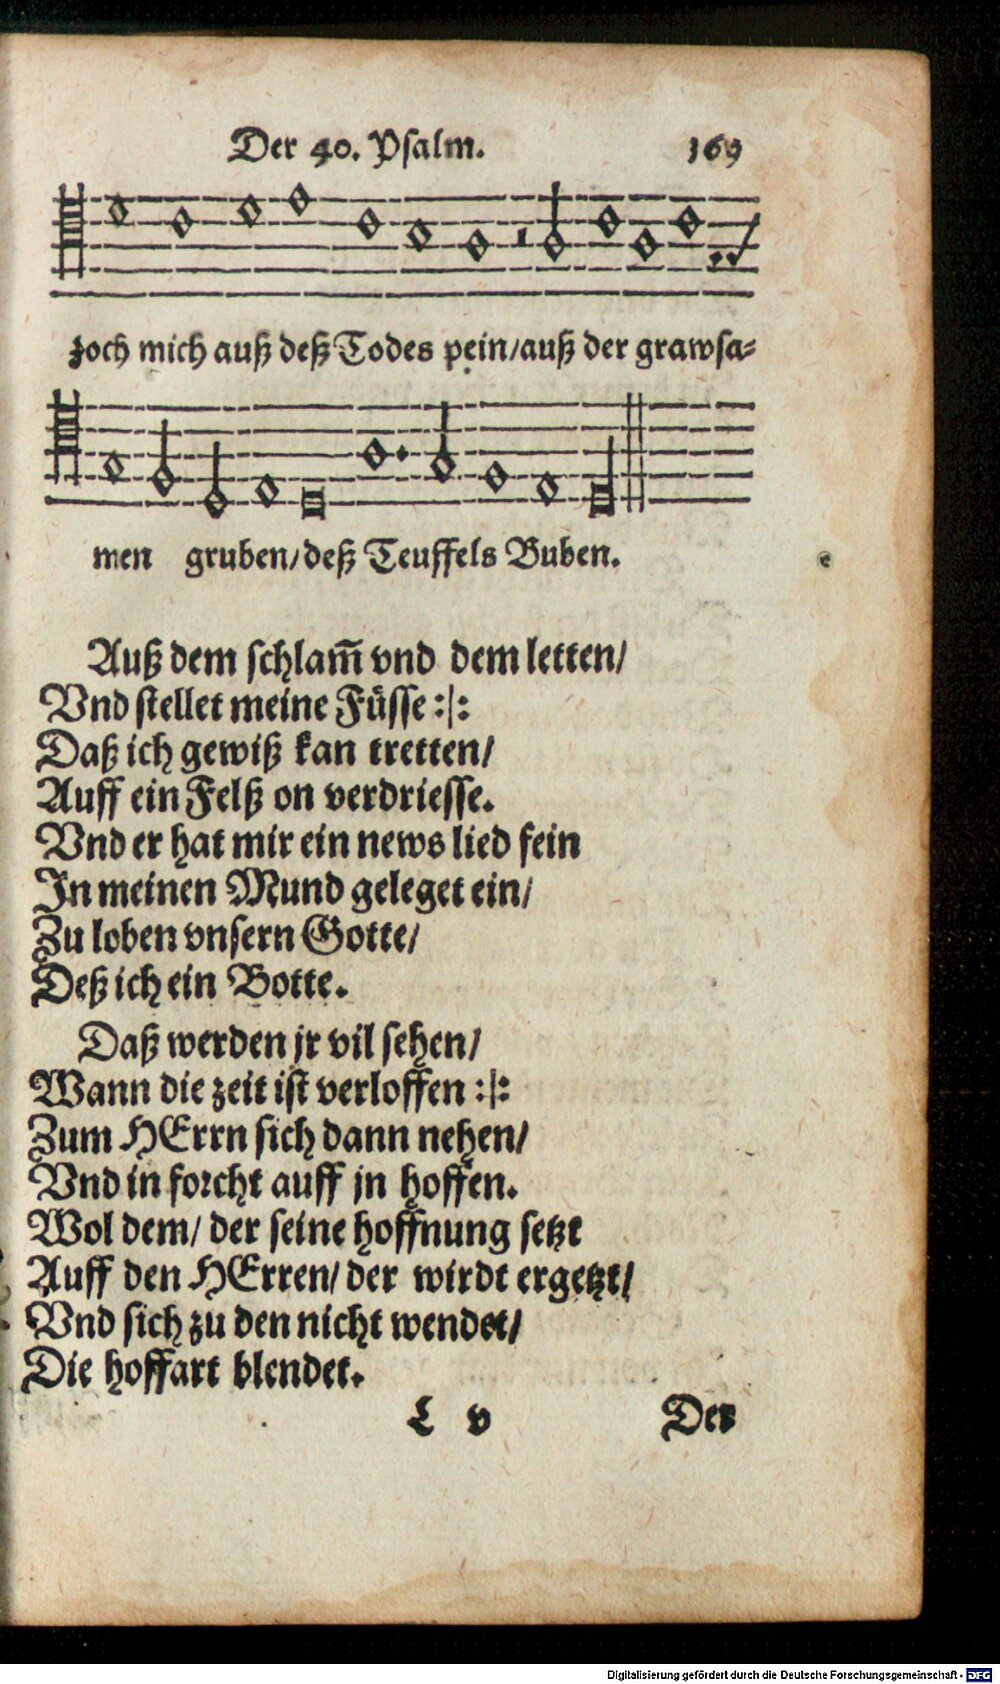 Der 40. Psalm. 169
zoch mich auß deß Todes pein/auß der grawsa⸗
men gruben/deß Teuffels Buben.
Auß dem schlam̃ vnd dem letten/
Vnd stellet meine Füsse :|:
Daß ich gewiß kan tretten/
Auff ein Felß on verdriesse.
Vnd er hat mir ein news lied fein
In meinen Mund geleget ein/
Zu loben vnsern Gotte/
Deß ich ein Botte.
Daß werden jr vil sehen/
Wann die zeit ist verloffen :|:
Zum HErrn sich dann nehen/
Vnd in forcht auff jn hoffen.
Wol dem/ der seine hoffnung setzt
Auff den HErren/ der wirdt ergetzt/
Vnd sich zu den nicht wendet/
Die hoffart blendet.
L v Der
Digitalisierung gefördert durch die Deutsche Forschungsgemeinschaft - DFG